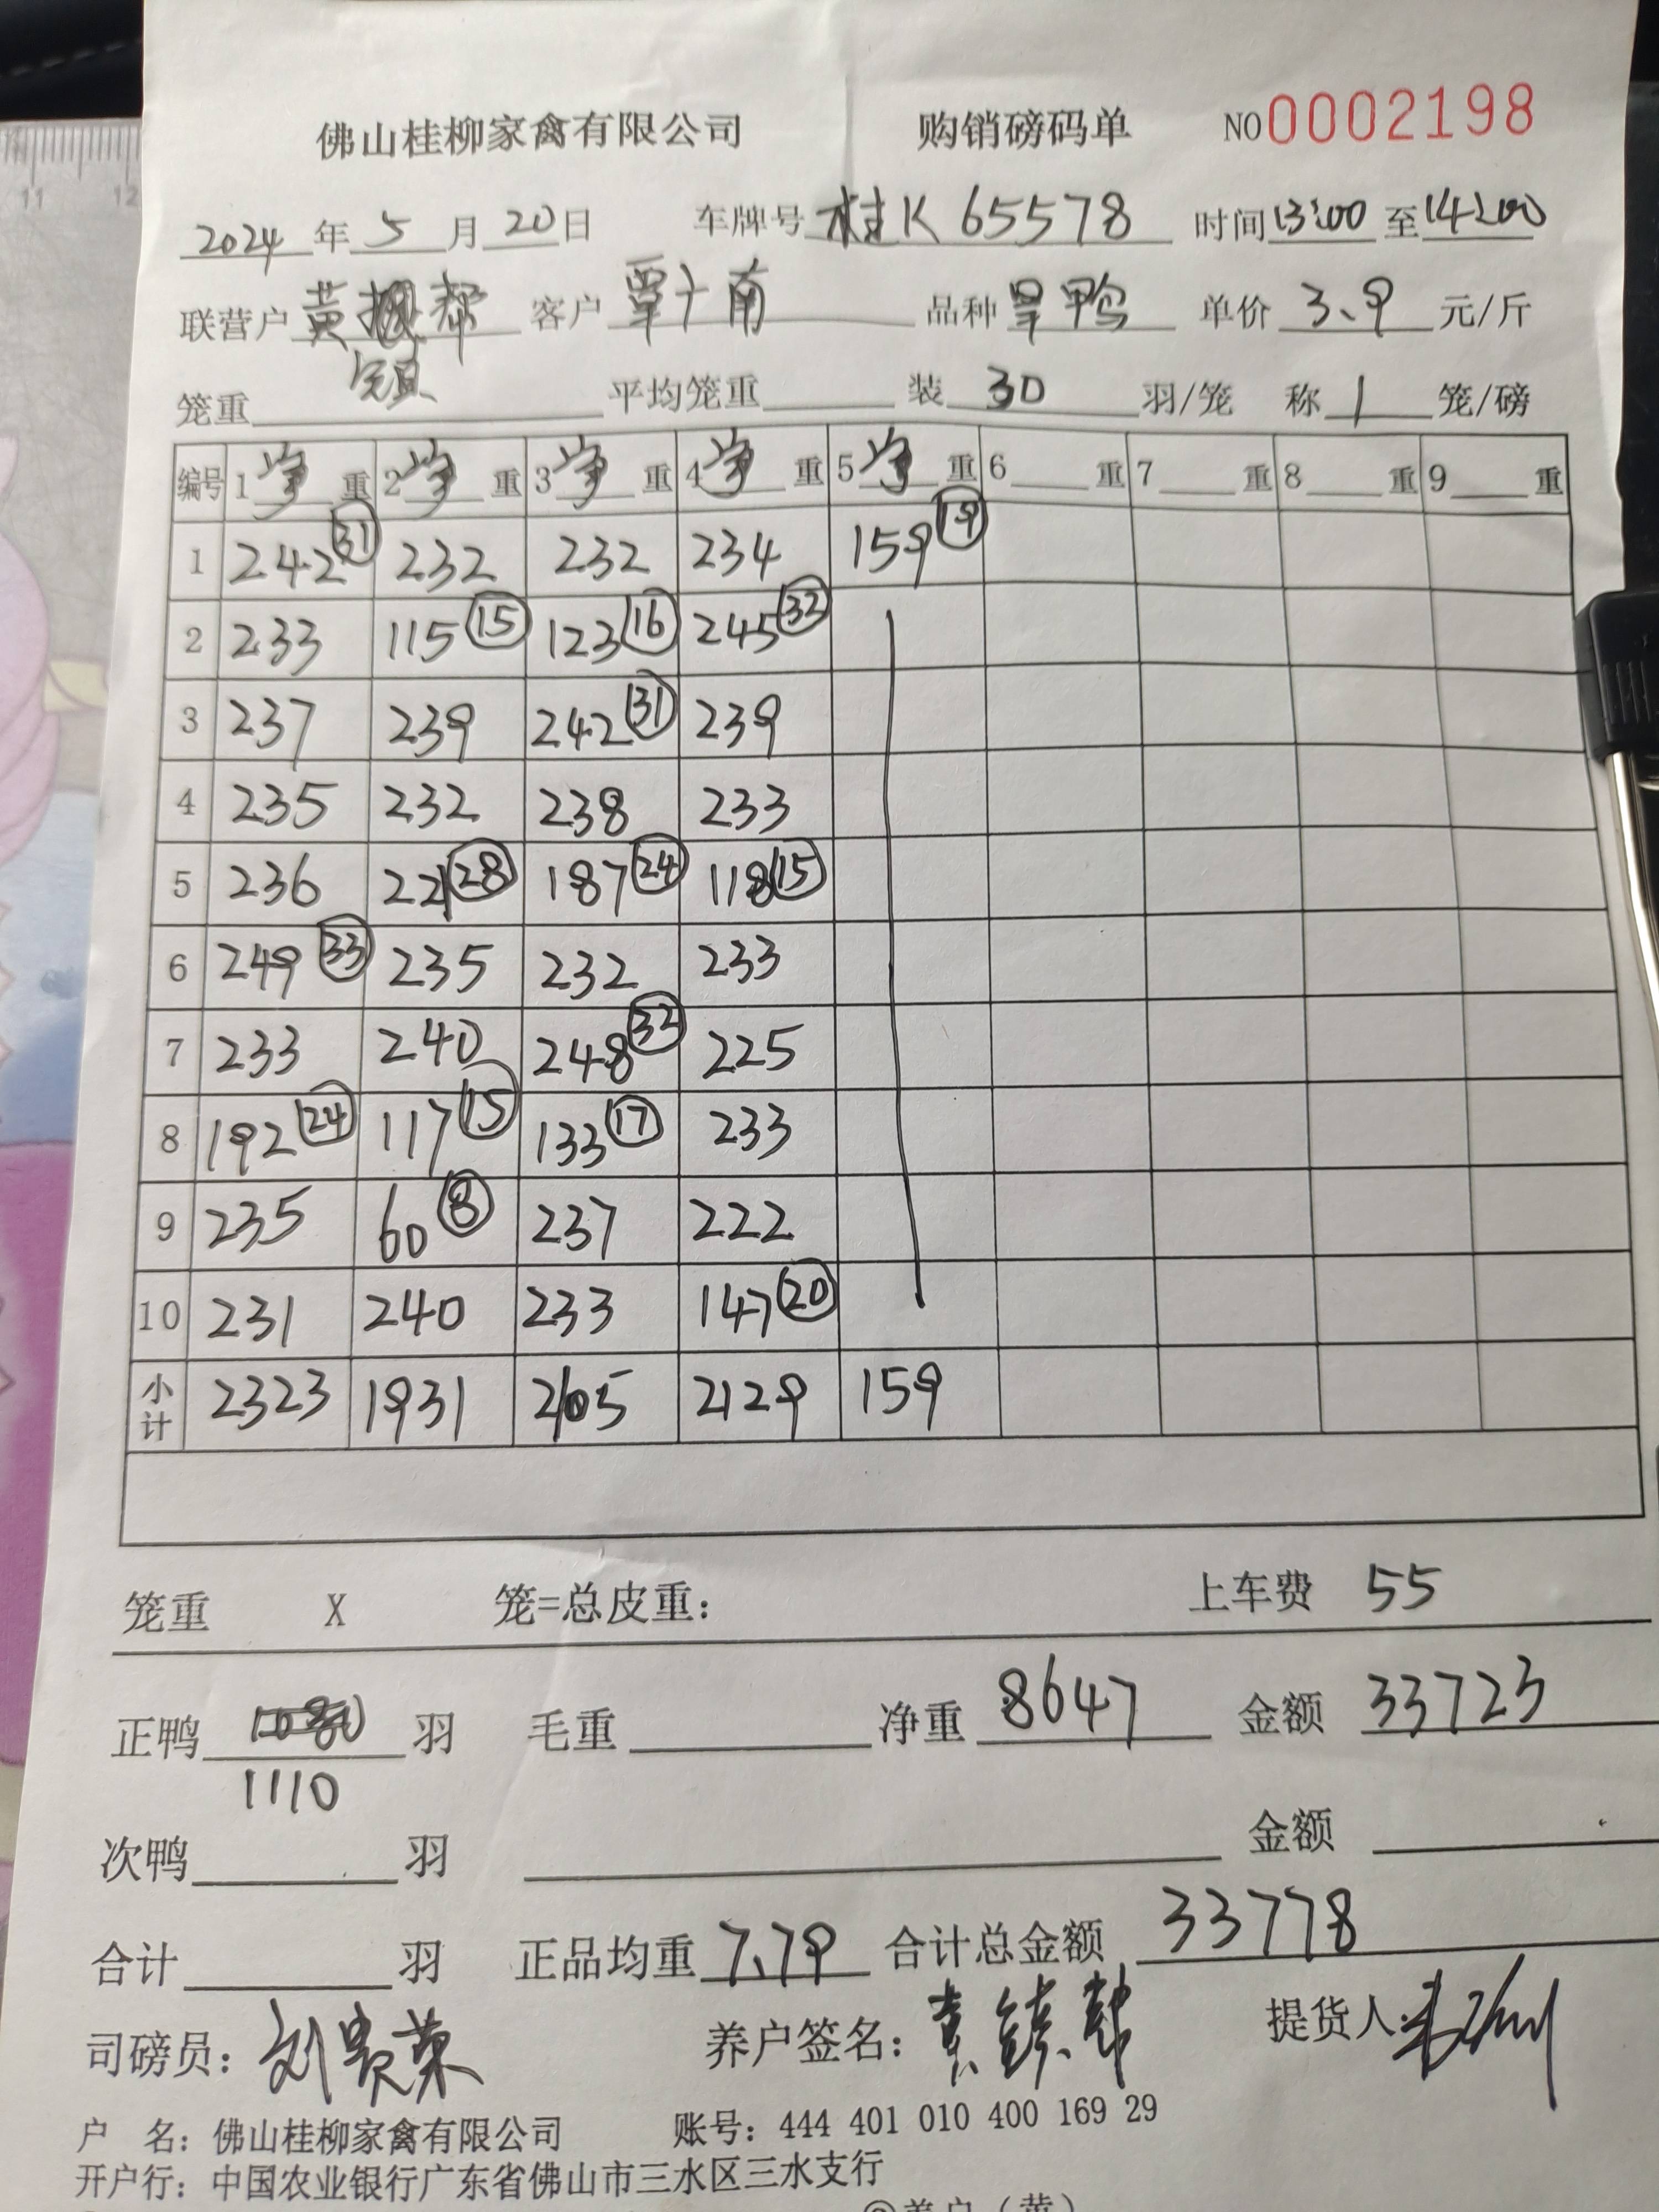 11 12
佛山桂柳家禽有限公司 购销磅码单 NO0002198
2024年5月20日 车牌号桂K65578 时间13:00至14:00
联营户黄帮 客户覃十南 品种旱鸭 单价3.9元/斤
镇
笼重 平均笼重 装30羽/笼 称1笼/磅
编号 1净重 2净重 3净重 4净重 5净重 6重 7重 8重 9重
1 242㉛ 232 232 234 159⑲
2 233 115⑮ 123⑯ 245㉜
3 237 239 242㉛ 239
4 235 232 238 233
5 236 221㉘ 187㉔ 118⑮
6 249㉝ 235 232 233
7 233 240 248㉜ 225
8 192㉔ 117⑮ 133⑰ 233
9 235 60⑧ 237 222
10 231 240 233 147⑳
小计 2323 1931 2105 2129 159
笼重 X 笼=总皮重： 上车费 55
正鸭 羽 毛重 净重 8647 金额 33723
1110
次鸭 羽 金额
合计 羽 正品均重 7.79 合计总金额 33778
司磅员：刘贵荣 养户签名：黄镇帮 提货人
户 名：佛山桂柳家禽有限公司 账号：444 401 010 400 169 29
开户行：中国农业银行广东省佛山市三水区三水支行
②养户（黄）